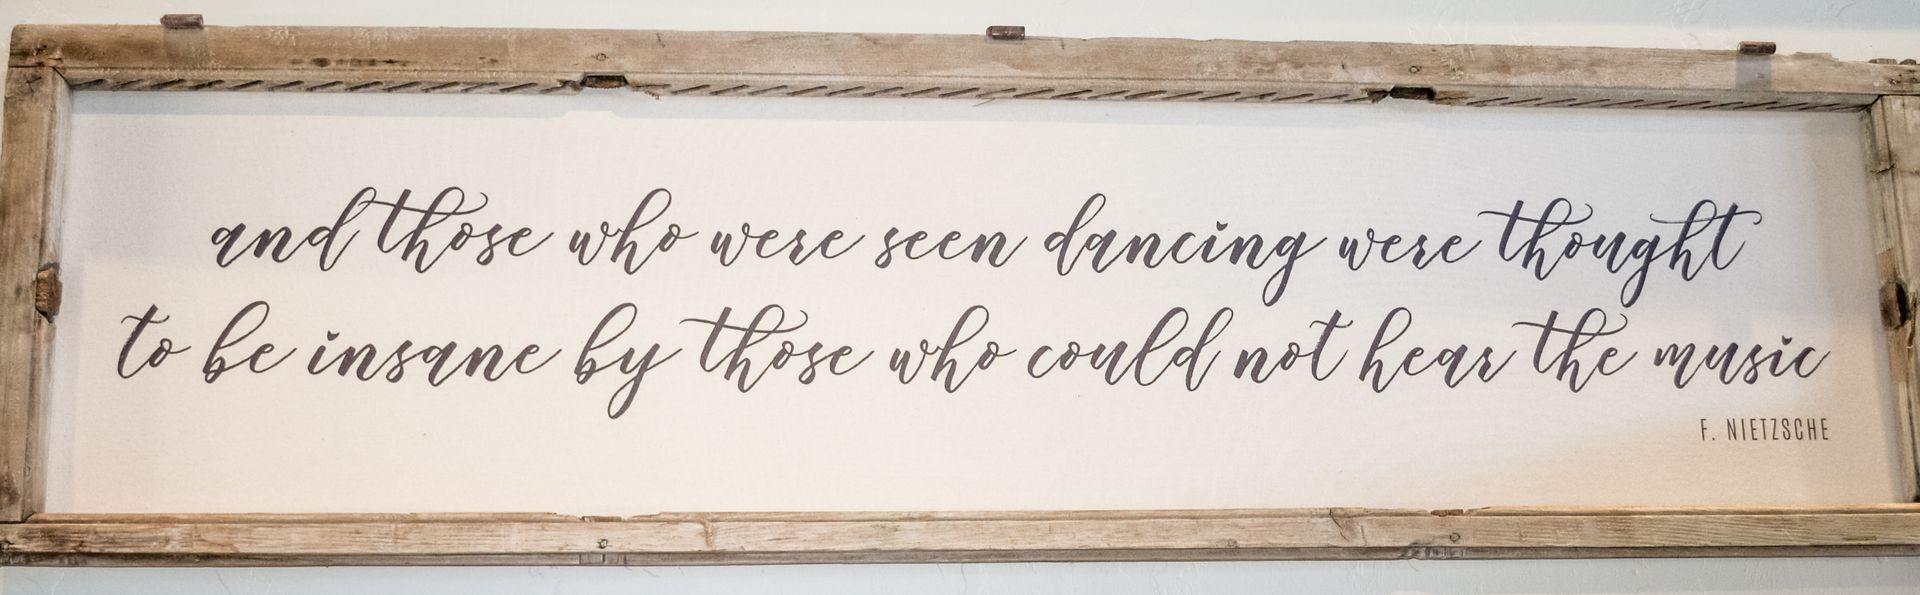 and those who were seen dancing were thought
to be insane by those who could not hear the music
F. NIETZSCHE